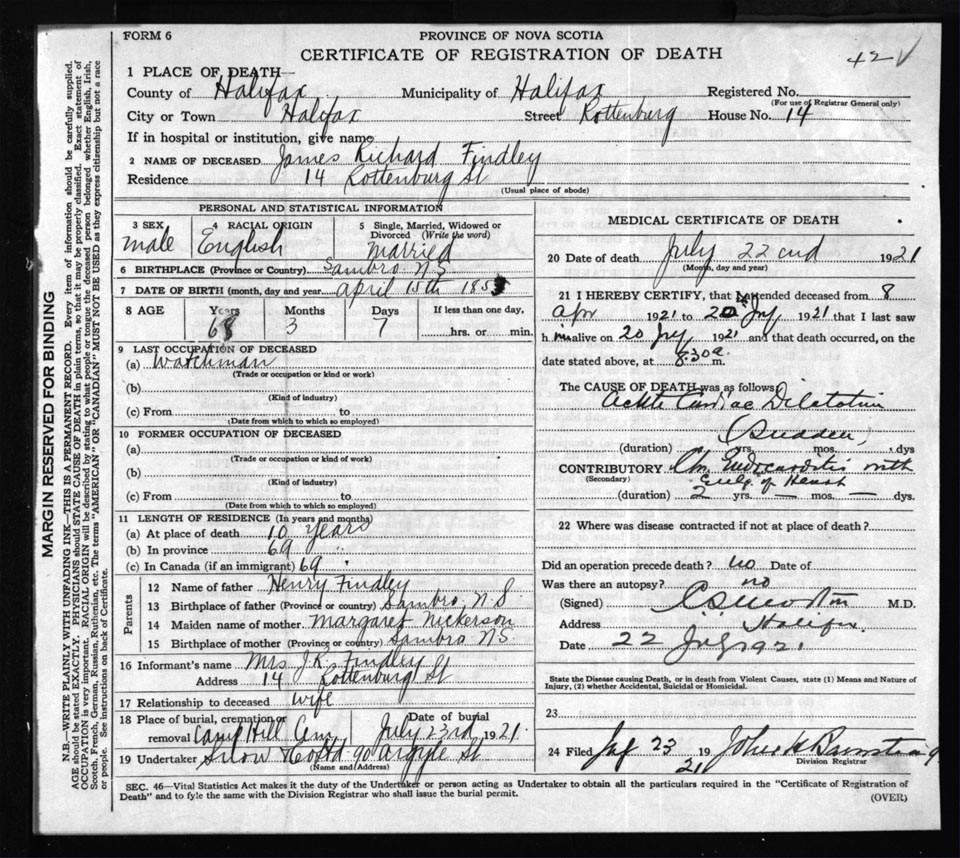 FORM 6
PROVINCE OF NOVA SCOTIA
CERTIFICATE OF REGISTRATION OF DEATH
42 √
1 PLACE OF DEATH—
County of Halifax Municipality of Halifax Registered No.
(For use of Registrar General only)
City or Town Halifax Street Rottenburg House No. 14
If in hospital or institution, give name
2 NAME OF DECEASED James Richard Findley
Residence 14 Rottenburg St
(Usual place of abode)
PERSONAL AND STATISTICAL INFORMATION
3 SEX 4 RACIAL ORIGIN 5 Single, Married, Widowed or
Divorced (Write the word)
male English Married
6 BIRTHPLACE (Province or Country) Sambro N S
7 DATE OF BIRTH (month, day and year April 15th 1853
8 AGE Years Months Days If less than one day,
68 3 7 hrs. or min.
9 LAST OCCUPATION OF DECEASED
(a) Watchman
(Trade or occupation or kind or work)
(b)
(Kind of industry)
(c) From to
(Date from which to which so employed)
10 FORMER OCCUPATION OF DECEASED
(a)
(Trade or occupation or kind of work)
(b)
(Kind of industry)
(c) From to
(Date from which to which so employed)
11 LENGTH OF RESIDENCE (In years and months)
(a) At place of death 10 years
(b) In province 69 "
(c) In Canada (if an immigrant) 69 "
Parents
12 Name of father Henry Findley
13 Birthplace of father (Province or country) Sambro, N.S
14 Maiden name of mother Margaret Nickerson
15 Birthplace of mother (Province or country) Sambro NS
16 Informant's name Mrs J.R. Findley
Address 14 Rottenburg St
17 Relationship to deceased wife
18 Place of burial, cremation or Date of burial
removal Camp Hill Cem July 23rd, 1921
19 Undertaker Snow & Co Ltd 90 Argyle St
(Name and Address)
MEDICAL CERTIFICATE OF DEATH
20 Date of death July 22 cnd 1921
(Month, day and year)
21 I HEREBY CERTIFY, that I attended deceased from 8
Apr 1921 to 20 July 1921 that I last saw
him alive on 20 July 1921 and that death occurred, on the
date stated above, at 8.30 a. m.
The CAUSE OF DEATH was as follows:
Acute Cardiac Dilatation
(Sudden)
(duration) yrs. mos. dys
CONTRIBUTORY Chr. Endocarditis with
(Secondary) Enlg. of Heart
(duration) 2 yrs. — mos. — dys.
22 Where was disease contracted if not at place of death?
Did an operation precede death? no Date of
Was there an autopsy? no
(Signed) M.D.
Address Halifax
Date 22 July 1921
State the Disease causing Death, or in death from Violent Causes, state (1) Means and Nature of
Injury, (2) whether Accidental, Suicidal or Homicidal.
23
24 Filed July 23 19 21 John
Division Registrar
SEC. 46—Vital Statistics Act makes it the duty of the Undertaker or person acting as Undertaker to obtain all the particulars required in the "Certificate of Registration of
Death" and to fyle the same with the Division Registrar who shall issue the burial permit.
(OVER)
MARGIN RESERVED FOR BINDING
N.B.—WRITE PLAINLY WITH UNFADING INK—THIS IS A PERMANENT RECORD. Every item of information should be carefully supplied.
AGE should be stated EXACTLY. PHYSICIANS should STATE CAUSE OF DEATH in plain terms, so that it may be properly classified. Exact statement of
OCCUPATION is very important. RACIAL ORIGIN will be described by stating to what people or tongue the deceased person belonged whether English, Irish,
Scotch, French, German, Russian, Ruthenian, etc. The terms "AMERICAN" or "CANADIAN" MUST NOT BE USED as they express citizenship but not a race
or people. See instructions on back of Certificate.